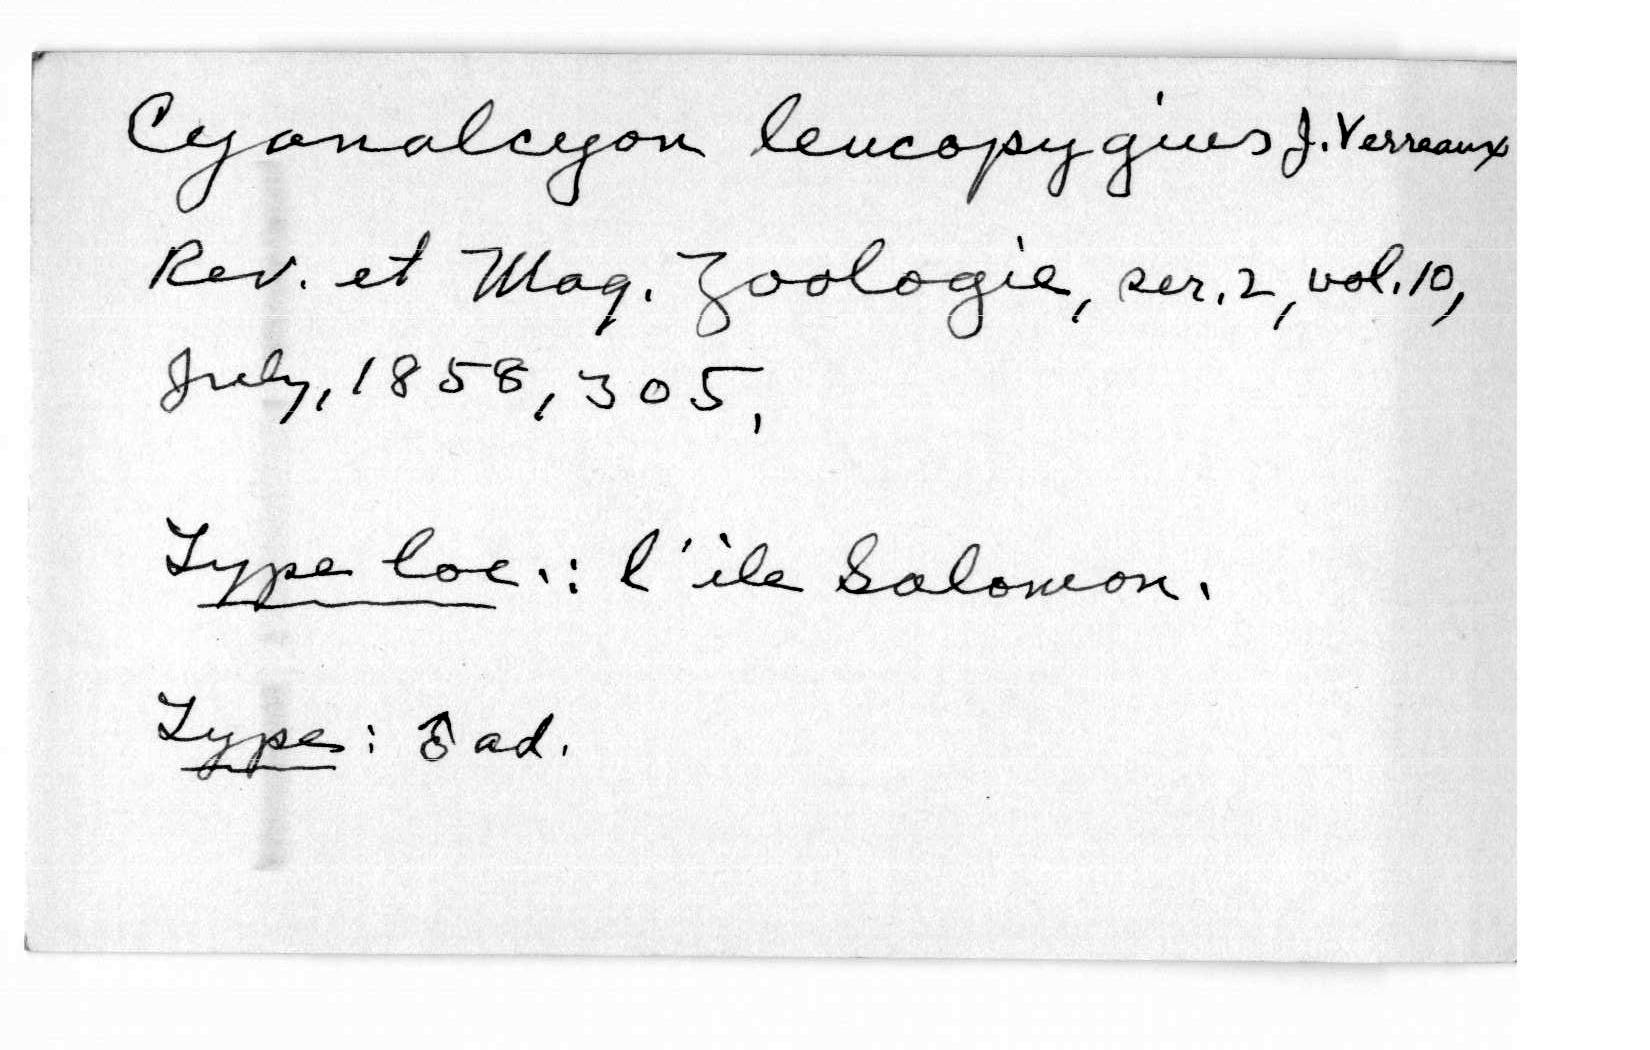 Cyanalcyon leucopygius J. Verreaux
Rev. et Mag. Zoologie, ser. 2, vol. 10,
July, 1858, 305,
Type loc.: l'ile Salomon.
Type: ♂ ad.